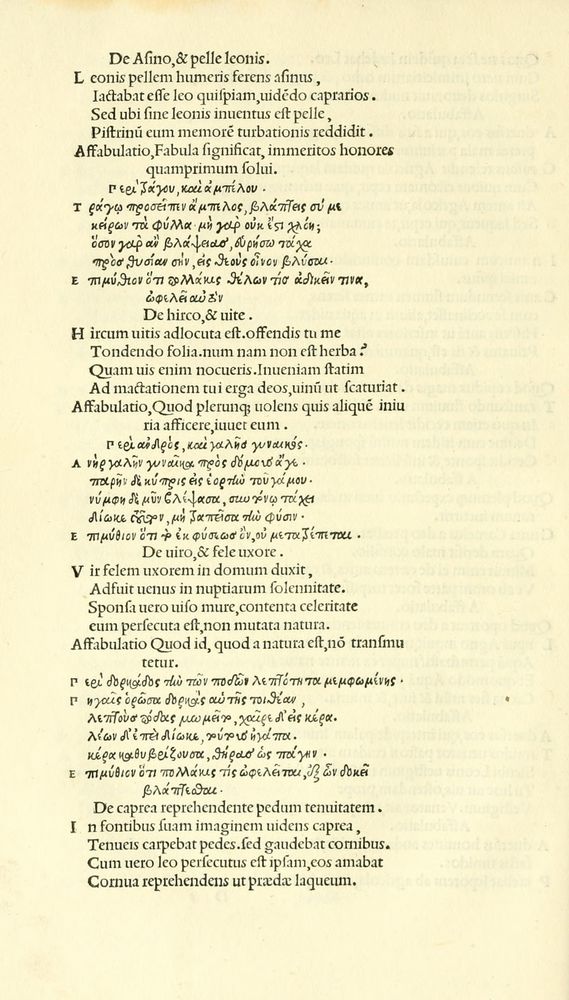 De Asino,& pelle leonis.
L eonis pellem humeris ferens asinus,
Iactabat esse leo quispiam,uidēdo caprarios.
Sed ubi sine leonis inuentus est pelle,
Pistrinū eum memorē turbationis reddidit.
Affabulatio,Fabula significat, immeritos honores
quamprimum solui.
Γ ερὶ τράγου, καὶ ἀμπέλου.
Τ ράγῳ προσεῖπεν ἄμπελος, βλάπτεις σύ με
κείρων τὰ φύλλα. μὴ γὰρ οὐκ ἔστι χλόη;
ὅσον γὰρ ἂν βλάψειας, εὑρήσω τάχα
πρὸς θυσίαν σὴν, εἰς θεοὺς οἶνον βλύσαι.
Ε πιμύθιον ὅτι πολλάκις θέλων τὶς ἀδικεῖν τινα,
ὠφελεῖ αὐτόν
De hirco,& uite.
H ircum uitis adlocuta est.offendis tu me
Tondendo folia.num nam non est herba?
Quam uis enim nocueris.Inueniam statim
Ad mactationem tui erga deos,uinū ut scaturiat.
Affabulatio,Quod plerunq; uolens quis aliquē iniu
ria afficere,iuuet eum.
Γ ερὶ ἀνδρὸς, καὶ γαλῆς γυναικός.
Α νὴρ γαλῆν γυναῖκα πρὸς δόμους ἄγε.
παρῆν δὲ κύπρις εἰς ἑορτὴν τοῦ γάμου.
νύμφη δὲ μῦν βλέψασα, σὺν τόνῳ τάχει
δίωκε τοῦτον, μὴ τραπεῖσα τὴν φύσιν.
Ε πιμύθιον ὅτι τὸ ἐκ φύσεως ὂν,οὐ μετατρέπεται.
De uiro,& fele uxore.
V ir felem uxorem in domum duxit,
Adfuit uenus in nuptiarum solennitate.
Sponsa uero uiso mure,contenta celeritate
eum persecuta est,non mutata natura.
Affabulatio Quod id, quod a natura est,nō transmu
tetur.
Γ ερὶ δορκάδος τὴν τῶν ποδῶν λεπτότητα μεμφομένης.
Γ ηγαῖς ὁρῶσα δορκὰς αὑτῆς τὴν θέαν,
λεπτοὺς πόδας μωμεῖτο, χαῖρε δ' εἰς κέρα.
λέων δ' ἐπεὶ δίωκε, τούτους ἠγάπα.
κέρα καθυβρίζουσα, θήρας ὡς πάγην.
Ε πιμύθιον ὅτι πολλάκις τὶς ὠφελεῖται, ἐξ ὧν δοκεῖ
βλάπτεσθαι.
De caprea reprehendente pedum tenuitatem.
I n fontibus suam imaginem uidens caprea,
Tenueis carpebat pedes.sed gaudebat cornibus.
Cum uero leo persecutus est ipsam,eos amabat
Cornua reprehendens ut prædæ laqueum.